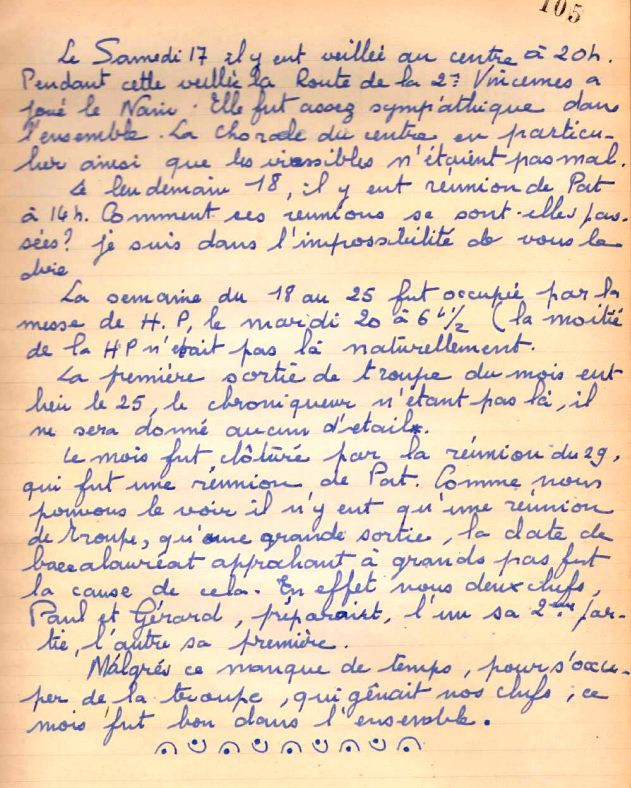 105
Le Samedi 17 il y eut veillée au centre à 20h.
Pendant cette veillée la Route de la 2e Vincennes a
joué le Nain. Elle fut assez sympathique dans
l'ensemble. La chorale du centre en particu-
lier ainsi que les invisibles n'étaient pas mal.
Le lendemain 18, il y eut réunion de Pat
à 14h. Comment ces reunions se sont-elles pas-
sées? je suis dans l'impossibilité de vous le
dire
La semaine du 18 au 25 fut occupée par la
messe de H.P, le mardi 20 à 6h 1/2 (la moitié
de la HP n'était pas là naturellement.
La première sortie de troupe du mois eut
lieu le 25, le chroniqueur n'étant pas là, il
ne sera donné aucun détail.
Le mois fut clôturé par la réunion du 29,
qui fut une réunion de Pat. Comme nous
pouvons le voir il n'y eut qu'une réunion
de troupe, qu'une grande sortie, la date de
baccalauréat approhant à grands pas fut
la cause de cela. En effet nous deux chefs,
Paul et Gérard, préparaint, l'un sa 2ème par-
tie, l'autre sa première.
Malgrés ce manque de temps, pour s'occu-
per de la troupe, qui gênait nos chefs, ce
mois fut bon dans l'ensemble.